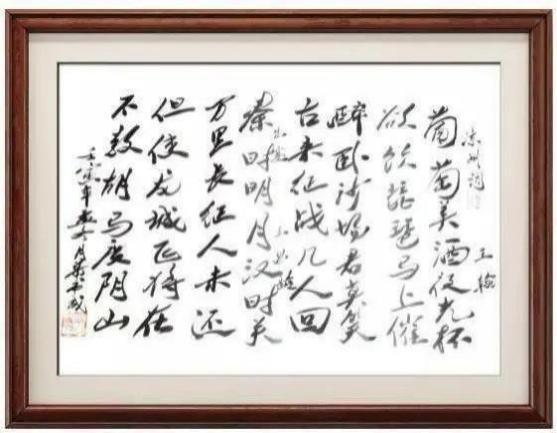 凉州词
王
葡萄美酒夜光杯
欲饮琵琶马上催
醉卧沙场君莫笑
古来征战几人回
出塞
王昌龄
秦时明月汉时关
万里长征人未还
但使龙城飞将在
不教胡马度阴山
壬寅年